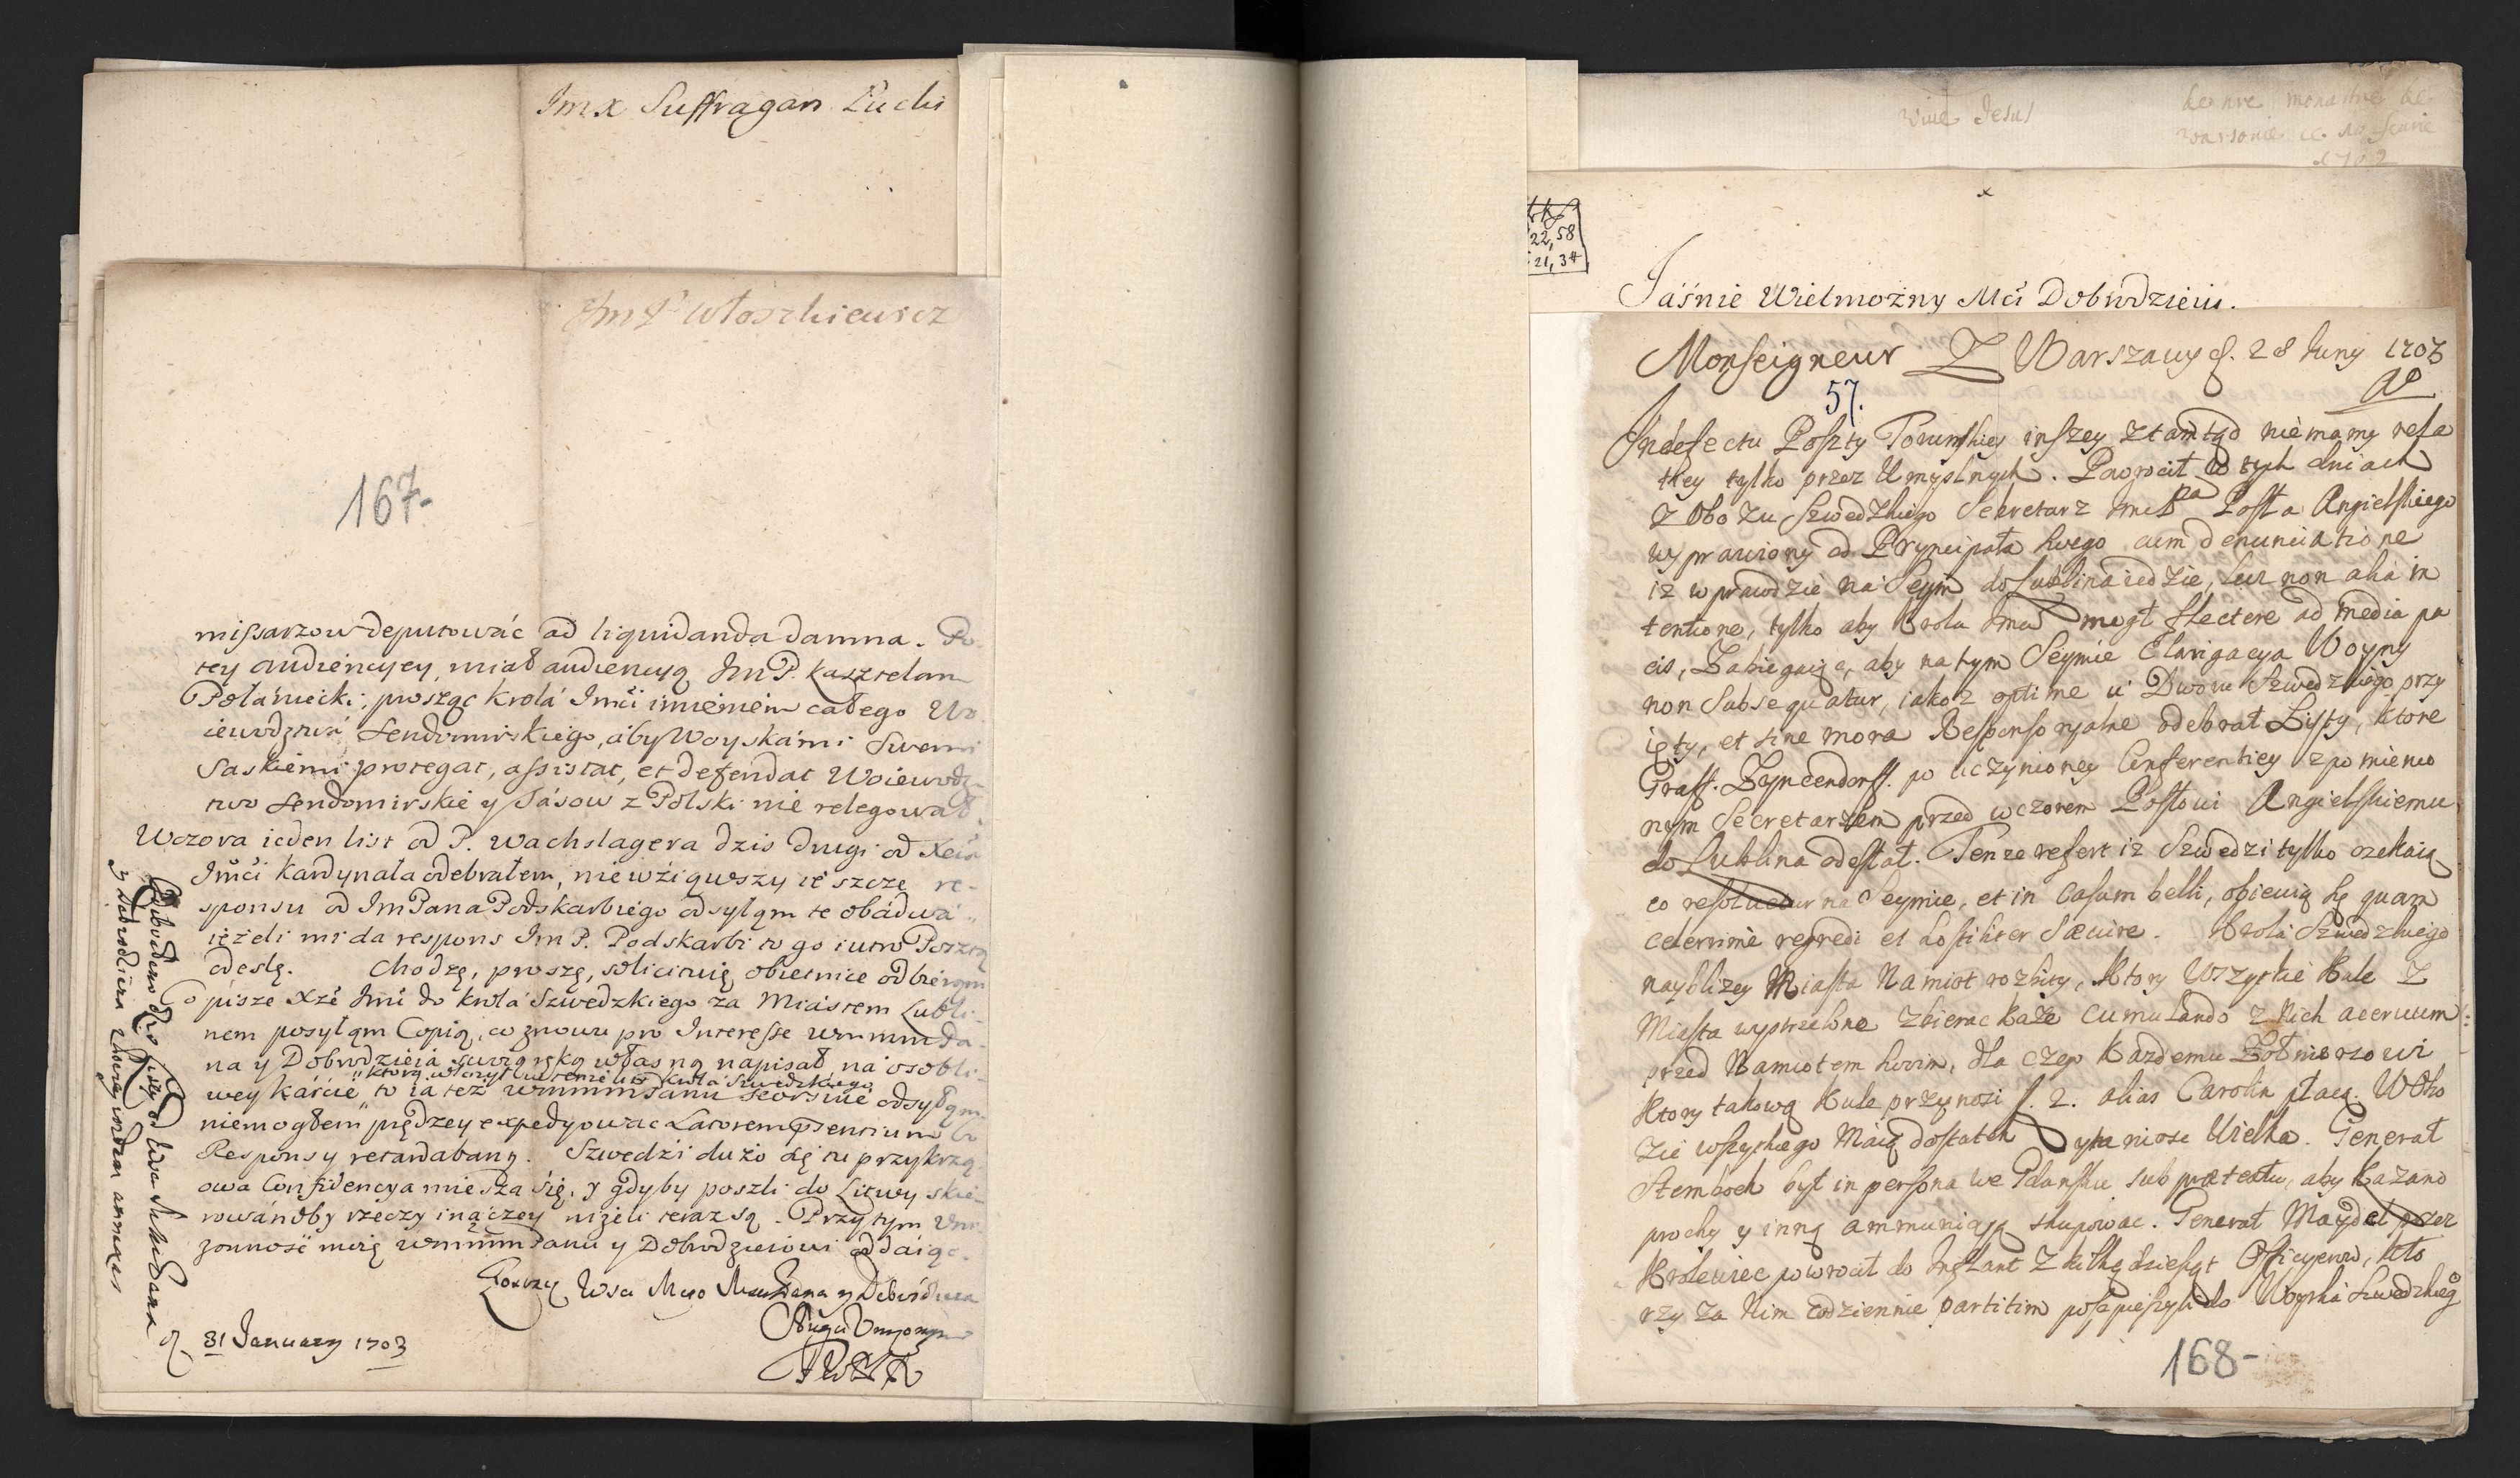 Imx Suffragan Łucki
Im P Włoszkiewicz
167-
missarzow deputowáć ad liquidanda damna. Po
tey audiencyey, miał audiencyą Im P. Kasztelan
Połániecki, prosząc Krolá Imći imieniem całego Wo
iewodztwá Sendomirskiego, áby Woyskámi Swemi
Saskiemi protegat, assistat, et defendat Woiewodz-
two Sendomirskie y Sásow z Polski nie relegował.
Wczora ieden list od P. Wachslagera dzis drugi od Xcia
Imći Kardynała odebrałem, nie wziąwszy ieszcze re-
sponsu od Im Pana Podskarbiego odsyłąm te obádwá
ieżeli mi da respons Im P. Podskarbi to go iutro Posztą
odeslę. Chodzę, proszę, sollicituię, obietnice odbierąm
Co pisze Xże Imć do Krolá Szwedzkiego za Miástem Lubli-
nem posyłąm Copią, co znowu pro Interesse Wmmm Pa-
na y Dobrodzieiá swą ręką własną napisał ná osobli-
"ktorą włożył w Krolá Szwedzkiego
wey kárcie to ia też Wmmm Panu seorsive odsyłąm
niemogłem prędzey expedyowac Latorem præsentium bo
Responsy retardabant. Szwedzi dużo się tu przykrzą
owa Confidencya miesza się, y gdyby poszli do Litwy skie-
rowánoby rzeczy ináczey niżeli teraz są. Przytym Uni-
zonność moię Wmmm Panu y Dobrodzieiowi oddáiąc.
Wsci Mego Mci Pana y Dobrodzieia
Sługa Unizony
31 January 1703
y Dobrodzieia annexes
vive Jesus
de nre monastre de
1702
22,58
21,34
Jáśnie Wielmożny Mći Dobrodzieiu.
Monseigneur Z Warszawy d. 28 Juny 1703
57.
In defectu Poszty Torunskiey inszey ztamtąd niemamy rela
tiey tylko przez Umyslnych. Powrocił w tych dniach
z Obozu Szwedzkiego Sekretarz Imć Pa Posła Angielskiego
wyprawiony od Pryncipała swego cum denunciatione
iż wprawdzie na Seym do Lublina iedzie, lecz non alia in
tentione, tylko aby Krola Imci mogł flectere ad media pa
cis, Zabiegaiąc, aby na tym Seymie Elarigacya Woyny
non subsequatur, iakoż optime u Dworu Szwedzkiego przy
ięty, et sine mora Responsoryalne odebrał Listy, ktore
Graff. Zyncendorff. po uczynioney Conferentiey z pomienio
nym Secretarzem przed wczorem Posłowi Angielskiemu
do Lublina odesłał. Tenze refert iz Szwedzi tylko czekaią
co resolvetur na Seymie, et in Casum belli, obiecuią się quam
celerrime regredi et hostiliter Sævire. Krola Szwedzkiego
nayblizey Miasta Namiot rozbity, Ktory Wszytkie Kule z
Miasta wystrzelone zbierac kaze cumulando z Nich acervum
przed Namiotem swoim, dla czego Kazdemu Zołnierzowi
Ktory takową Kule przynosi f. 2. alias Carolin płacą. W Obo
zie wszytkiego Maią dostatek Dyta niose Wielka. Generał
Stembock był in persona we Gdansku sub prætextu, aby Kazano
prochy y inną ammunicyą skupowac. Generał Maydel przez
Krolewiec powrocił do Inflant z kilką dziesiąt Officyerow, kto
rzy za Nim codziennie partitim pospieszyli do Woyska Szwedzkieg
168-